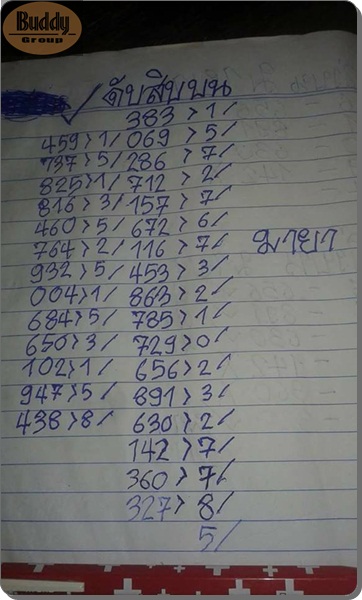 Buddy
Group
ดับสิบบน
383 > 1/
459 > 1/ 069 > 5/
737 > 5/ 286 > 7/
825 > 1/ 712 > 2/
816 > 3/ 157 > 7/
460 > 5/ 672 > 6/
764 > 2/ 116 > 7/ มายา
932 > 5/ 453 > 3/
004 > 1/ 863 > 2/
684 > 5/ 785 > 1/
650 > 3/ 729 > 0/
102 > 1/ 656 > 2/
947 > 5/ 891 > 3/
438 > 8/ 630 > 2/
142 > 7/
360 > 7/
327 > 8/
5/